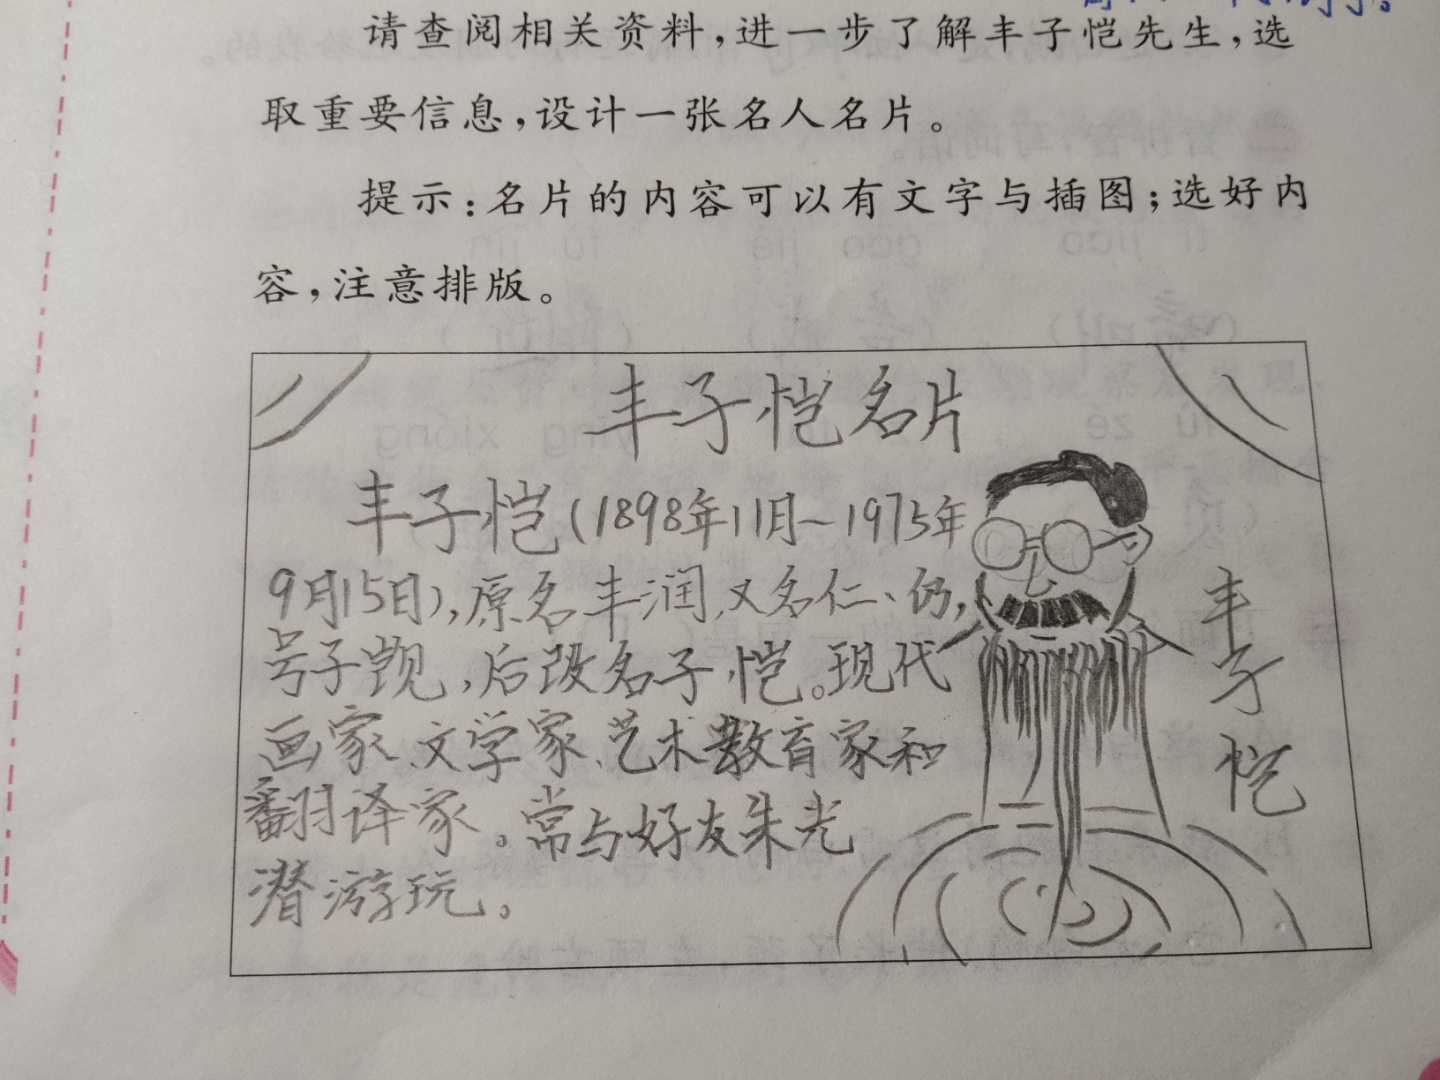 请查阅相关资料，进一步了解丰子恺先生，选
取重要信息，设计一张名人名片。
提示：名片的内容可以有文字与插图；选好内
容，注意排版。
丰子恺名片
丰子恺（1898年11月—1975年
9月15日），原名丰润，又名仁、仍，
号子觊，后改名子恺。现代
画家、文学家、艺术教育家和
翻译家。常与好友朱光
潜游玩。
丰子恺